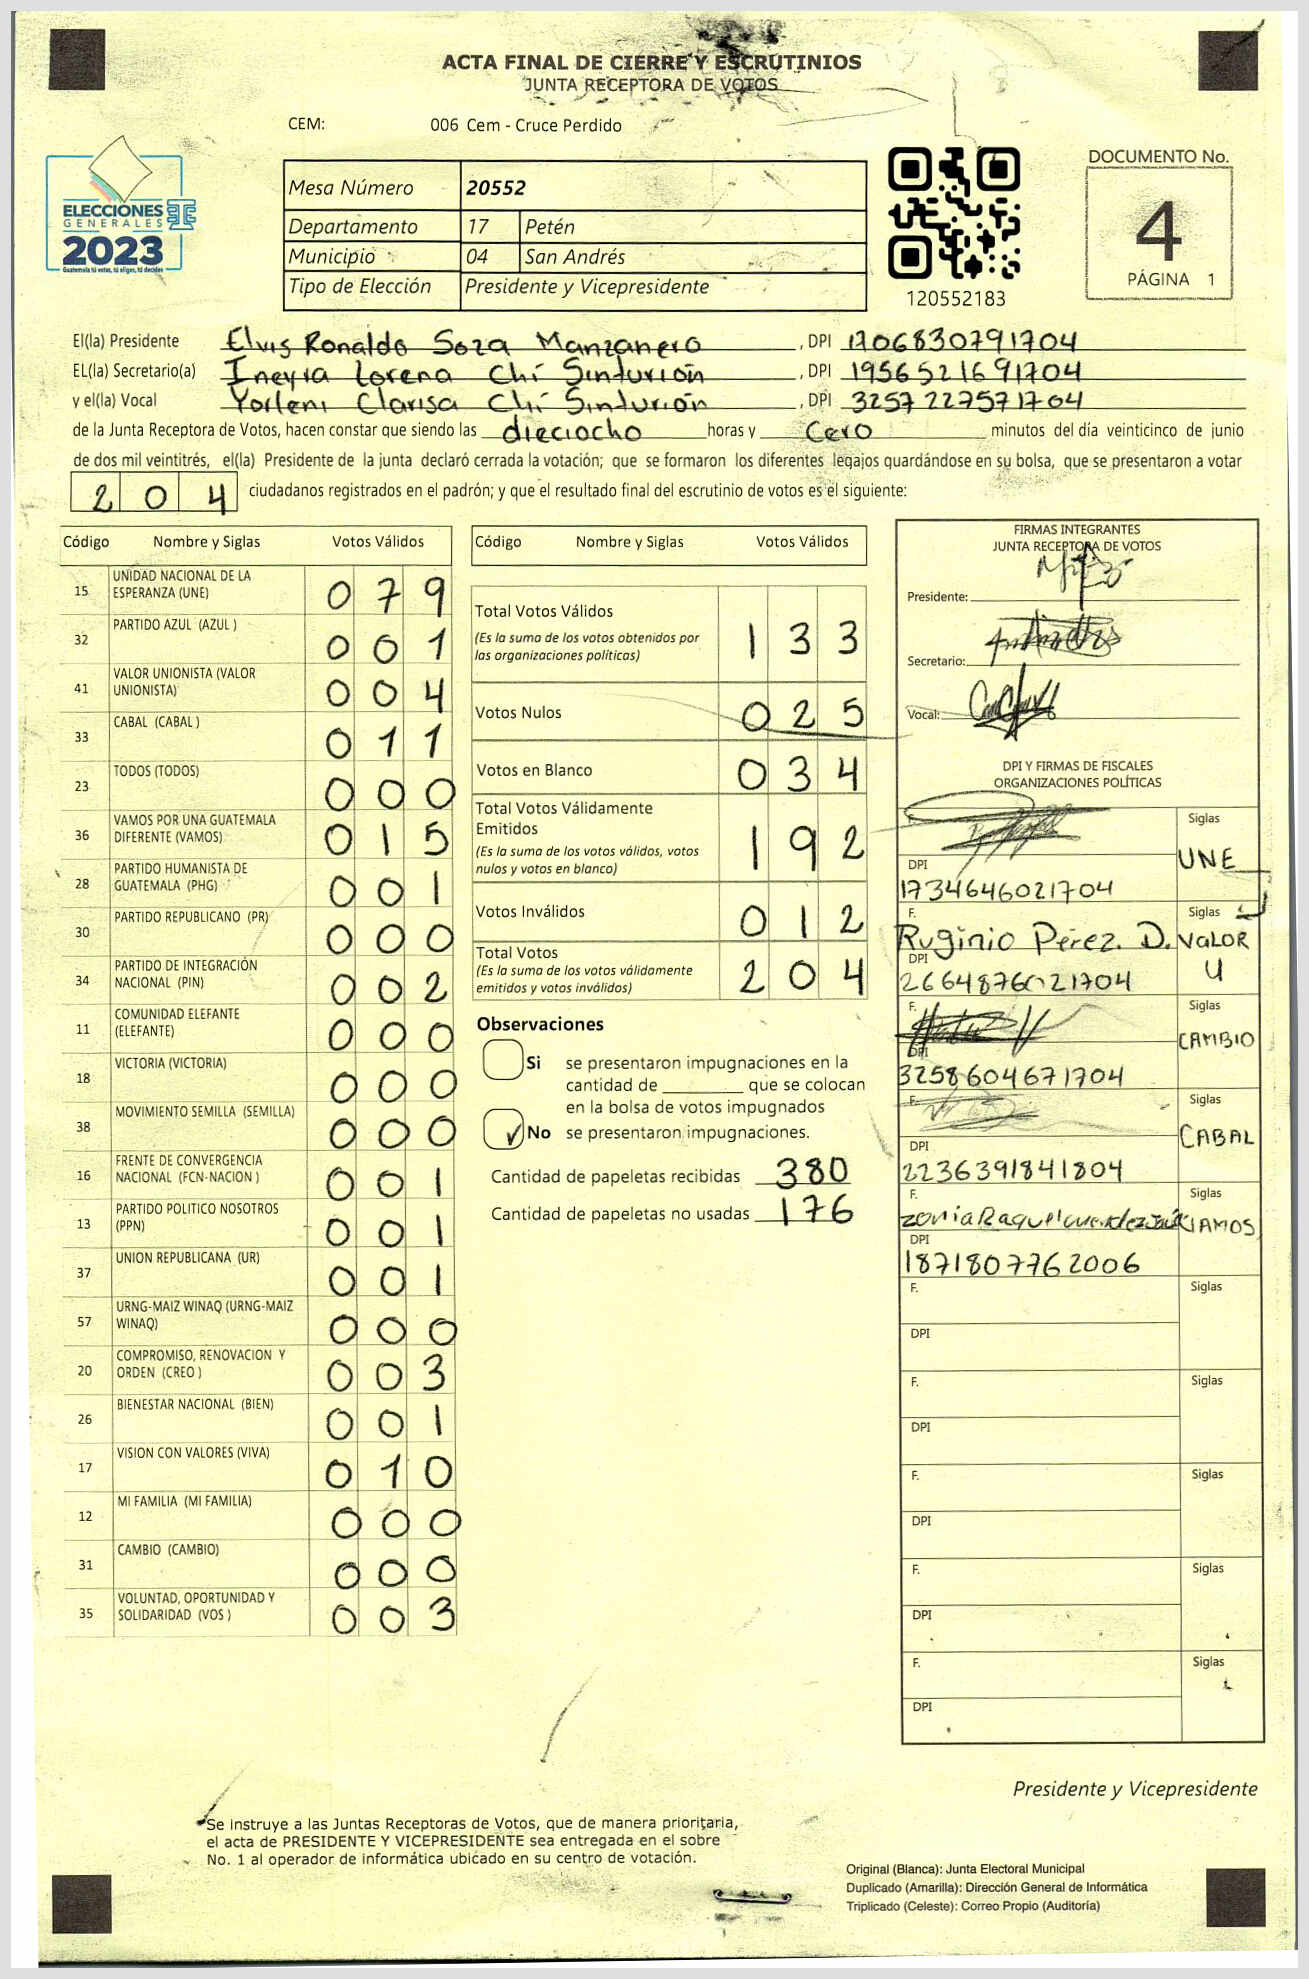 ACTA FINAL DE CIERRE Y ESCRUTINIOS
JUNTA RECEPTORA DE VOTOS
CEM: 006 Cem - Cruce Perdido
ELECCIONES
GENERALES
2023
Guatemala tú votas, tú eliges, tú decides
Mesa Número 20552
Departamento 17 Petén
Municipio 04 San Andrés
Tipo de Elección Presidente y Vicepresidente
120552183
DOCUMENTO No.
4
PÁGINA 1
El(la) Presidente Elvis Ronaldo Soza Manzanero, DPI 1706830791704
EL(la) Secretario(a) Ineyra Lorena Chí Sinturión, DPI 1956521691704
y el(la) Vocal Yorleni Clarisa Chí Sinturión, DPI 3257227571704
de la Junta Receptora de Votos, hacen constar que siendo las dieciocho horas y Cero minutos del día veinticinco de junio
de dos mil veintitrés, el(la) Presidente de la junta declaró cerrada la votación; que se formaron los diferentes legajos guardándose en su bolsa, que se presentaron a votar
204 ciudadanos registrados en el padrón; y que el resultado final del escrutinio de votos es el siguiente:
Código Nombre y Siglas Votos Válidos
15 UNIDAD NACIONAL DE LA ESPERANZA (UNE) 079
32 PARTIDO AZUL (AZUL ) 001
41 VALOR UNIONISTA (VALOR UNIONISTA) 004
33 CABAL (CABAL ) 011
23 TODOS (TODOS) 000
36 VAMOS POR UNA GUATEMALA DIFERENTE (VAMOS) 015
28 PARTIDO HUMANISTA DE GUATEMALA (PHG) 001
30 PARTIDO REPUBLICANO (PR) 000
34 PARTIDO DE INTEGRACIÓN NACIONAL (PIN) 002
11 COMUNIDAD ELEFANTE (ELEFANTE) 000
18 VICTORIA (VICTORIA) 000
38 MOVIMIENTO SEMILLA (SEMILLA) 000
16 FRENTE DE CONVERGENCIA NACIONAL (FCN-NACION ) 001
13 PARTIDO POLITICO NOSOTROS (PPN) 001
37 UNION REPUBLICANA (UR) 001
57 URNG-MAIZ WINAQ (URNG-MAIZ WINAQ) 000
20 COMPROMISO, RENOVACION Y ORDEN (CREO ) 003
26 BIENESTAR NACIONAL (BIEN) 001
17 VISION CON VALORES (VIVA) 010
12 MI FAMILIA (MI FAMILIA) 000
31 CAMBIO (CAMBIO) 000
35 VOLUNTAD, OPORTUNIDAD Y SOLIDARIDAD (VOS ) 003
Código Nombre y Siglas Votos Válidos
Total Votos Válidos 133
(Es la suma de los votos obtenidos por
las organizaciones políticas)
Votos Nulos 025
Votos en Blanco 034
Total Votos Válidamente
Emitidos 192
(Es la suma de los votos válidos, votos
nulos y votos en blanco)
Votos Inválidos 012
Total Votos 204
(Es la suma de los votos válidamente
emitidos y votos inválidos)
Observaciones
Si se presentaron impugnaciones en la
cantidad de ________ que se colocan
en la bolsa de votos impugnados
✓ No se presentaron impugnaciones.
Cantidad de papeletas recibidas 380
Cantidad de papeletas no usadas 176
FIRMAS INTEGRANTES
JUNTA RECEPTORA DE VOTOS
Presidente:
Secretario:
Vocal:
DPI Y FIRMAS DE FISCALES
ORGANIZACIONES POLÍTICAS
F. Siglas
UNE
DPI
1734646021704
F. Siglas
Ruginio Pérez. D. VALOR U
DPI
2664876021704
F. Siglas
CAMBIO
DPI
3258604671704
F. Siglas
CABAL
DPI
2236391841804
F. Siglas
VAMOS
DPI
1871807762006
F. Siglas
DPI
F. Siglas
DPI
F. Siglas
DPI
F. Siglas
DPI
F. Siglas
DPI
Presidente y Vicepresidente
Se instruye a las Juntas Receptoras de Votos, que de manera prioritaria,
el acta de PRESIDENTE Y VICEPRESIDENTE sea entregada en el sobre
No. 1 al operador de informática ubicado en su centro de votación.
Original (Blanca): Junta Electoral Municipal
Duplicado (Amarilla): Dirección General de Informática
Triplicado (Celeste): Correo Propio (Auditoría)